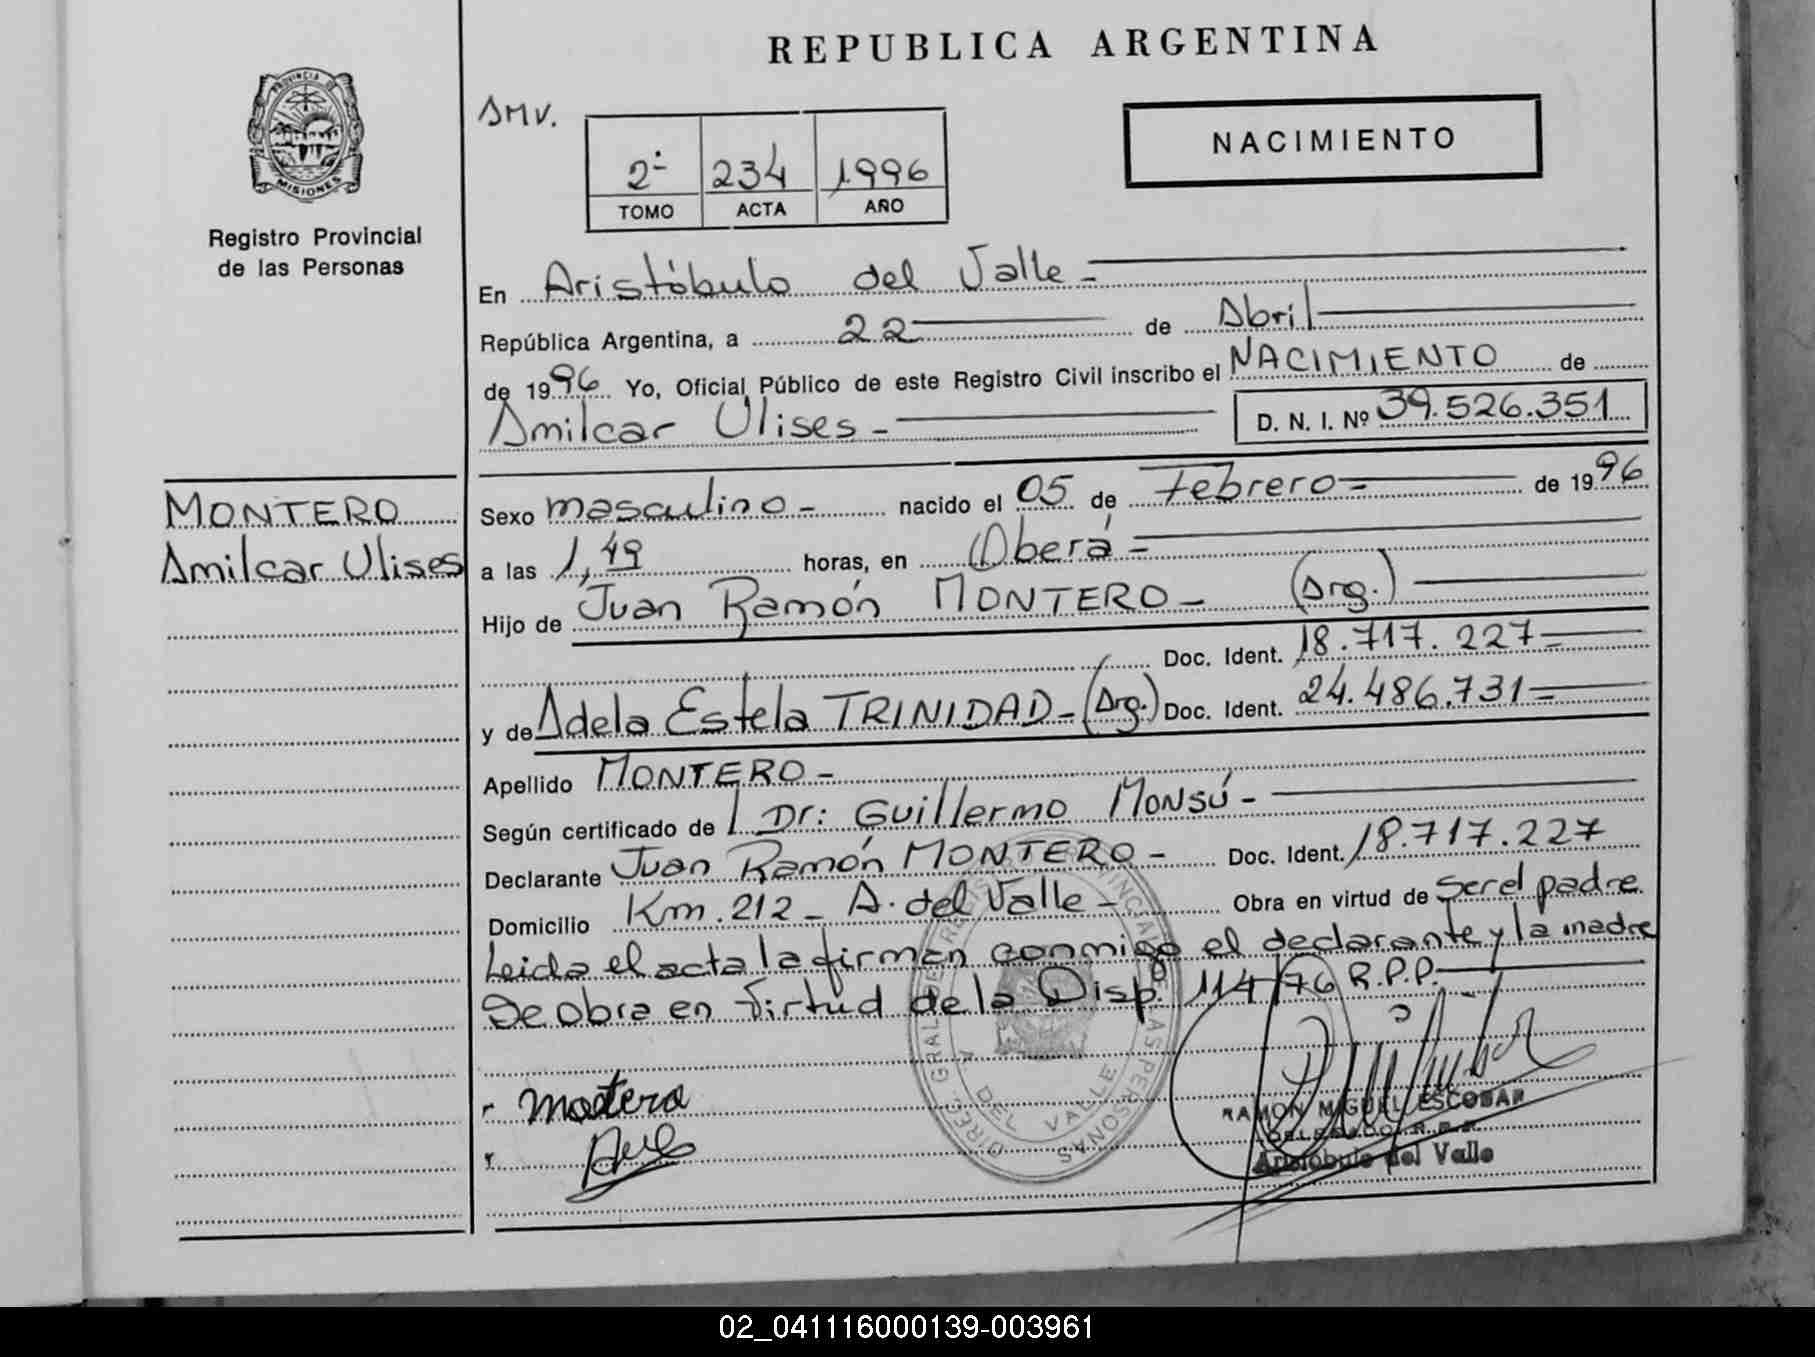 REPUBLICA ARGENTINA
PROVINCIA DE
MISIONES
Registro Provincial
de las Personas
AMV.
2º 234 1996
TOMO ACTA AÑO
NACIMIENTO
En Aristóbulo del Valle-
República Argentina, a 22 de Abril
de 1996 Yo, Oficial Público de este Registro Civil inscribo el NACIMIENTO de
Amilcar Ulises- D. N. I. Nº 39.526.351
MONTERO
Amilcar Ulises
Sexo masculino- nacido el 05 de Febrero- de 1996
a las 1,49 horas, en Oberá-
Hijo de Juan Ramón MONTERO- (Arg.)
Doc. Ident. 18.717.227-
y de Adela Estela TRINIDAD-(Arg.) Doc. Ident. 24.486.731-
Apellido MONTERO-
Según certificado de Dr: Guillermo Monsú-
Declarante Juan Ramón MONTERO- Doc. Ident. 18.717.227
Domicilio Km. 212- A. del Valle- Obra en virtud de ser el padre
Leida el acta la firman conmigo el declarante y la madre
Se obra en virtud de la Disp. 114/76 R.P.P.
DIREC. GRAL. DEL REGISTRO PROVINCIAL DE LAS PERSONAS
A DEL VALLE
Montero
RAMON MIGUEL ESCOBAR
DELEGADO R.P.P.
Aristóbulo del Valle
02_041116000139-003961